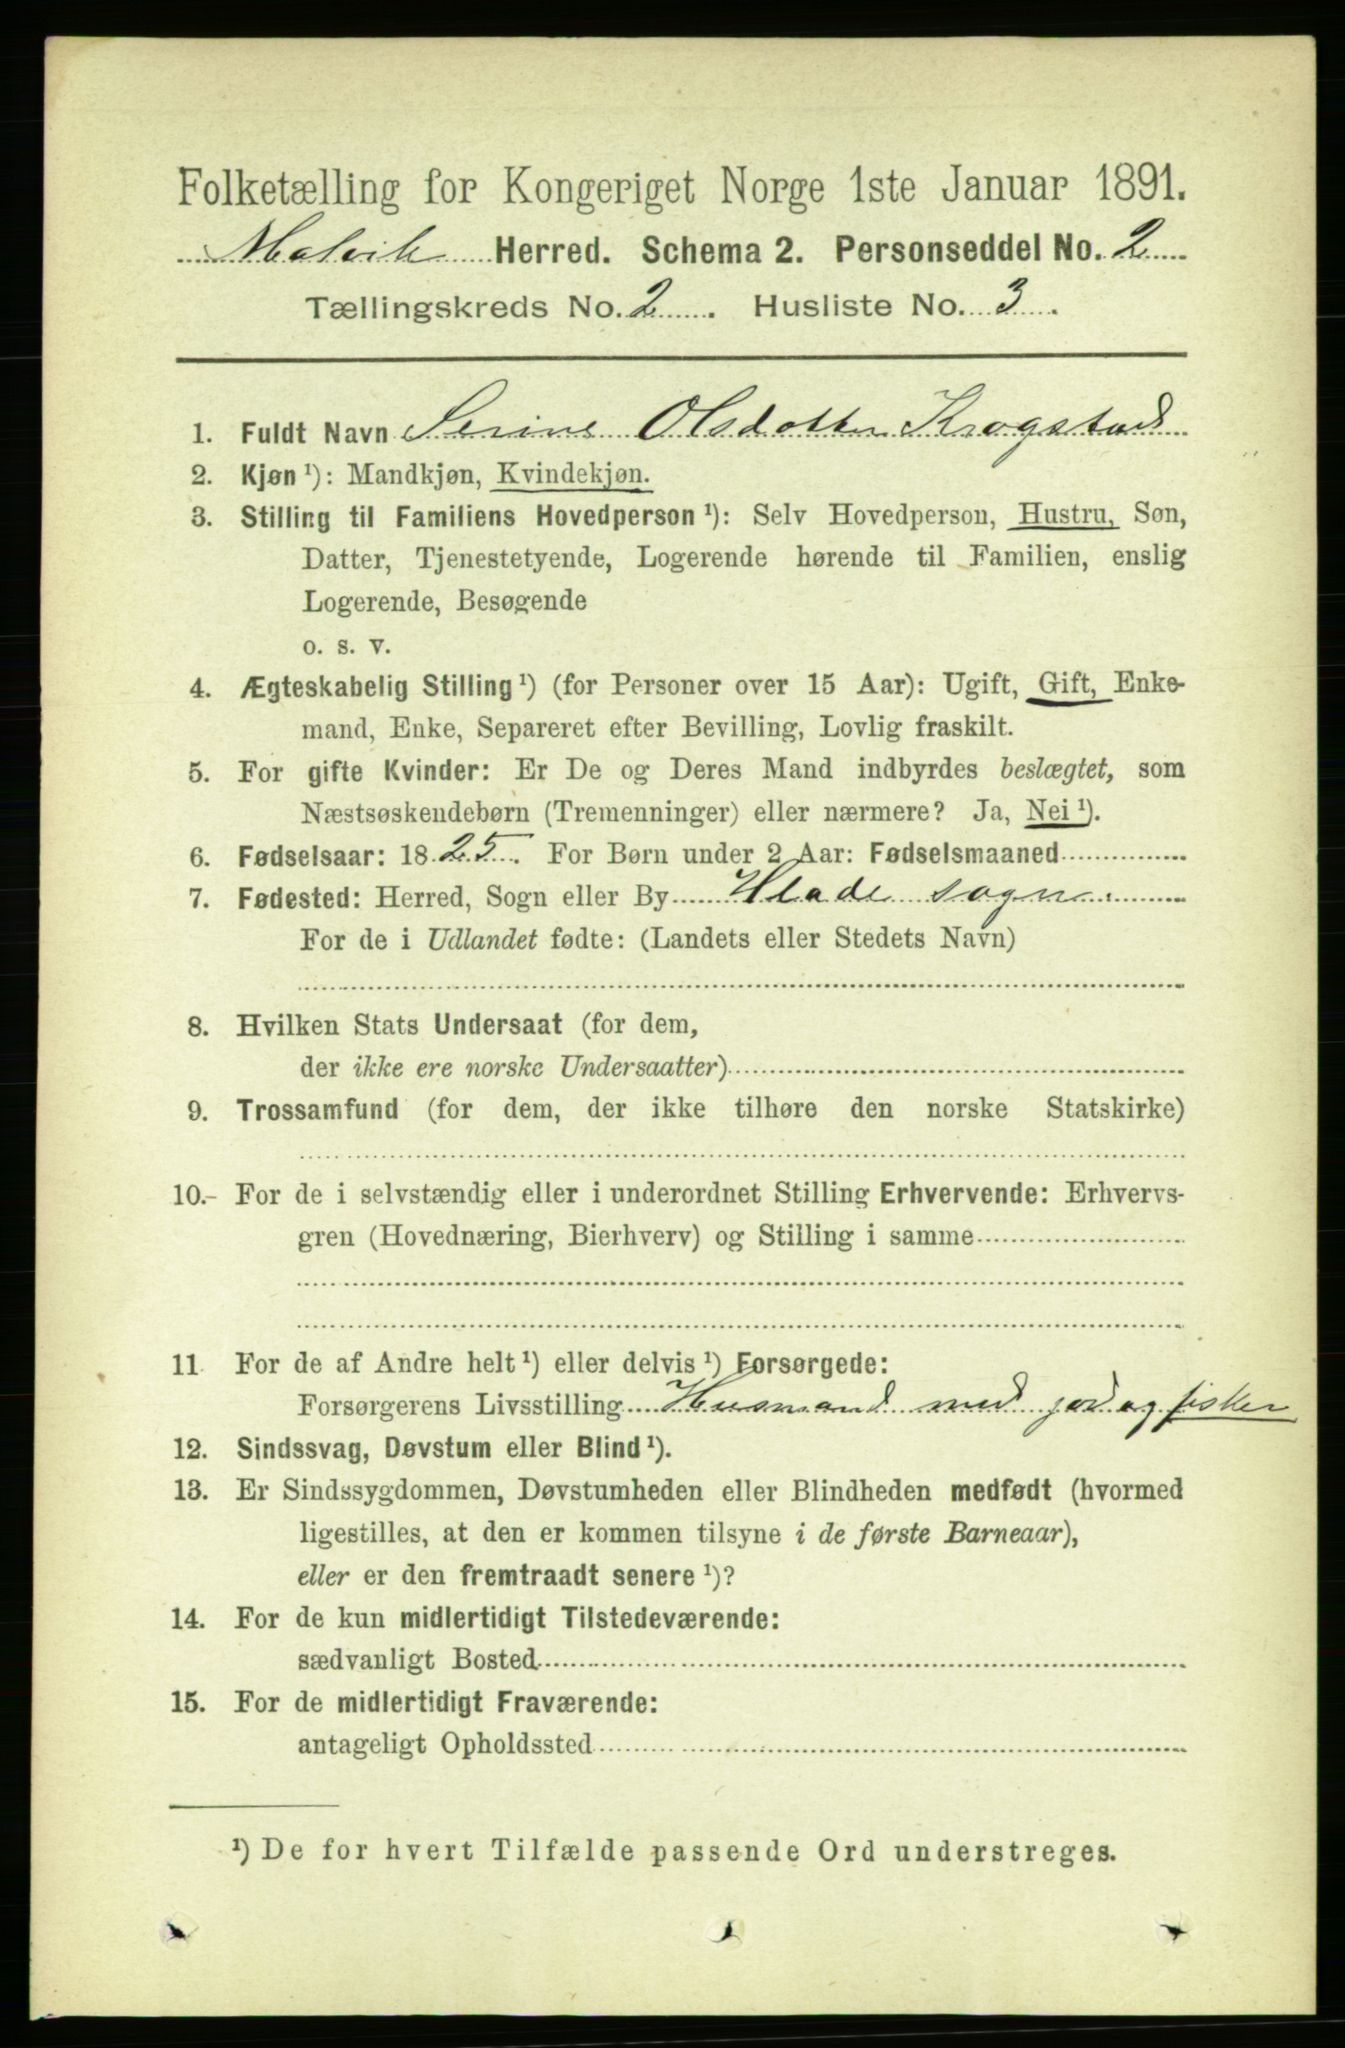 Folketælling for Kongeriget Norge 1ste Januar 1891.
Malvik Herred. Schema 2. Personseddel No. 2
Tællingskreds No. 2. Husliste No. 3.
1. Fuldt Navn Serine Olsdotter Krogstad
2. Kjøn ¹): Mandkjøn, Kvindekjøn.
3. Stilling til Familiens Hovedperson ¹): Selv Hovedperson, Hustru, Søn,
Datter, Tjenestetyende, Logerende hørende til Familien, enslig
Logerende, Besøgende
o. s. v.
4. Ægteskabelig Stilling ¹) (for Personer over 15 Aar): Ugift, Gift, Enke-
mand, Enke, Separeret efter Bevilling, Lovlig fraskilt.
5. For gifte Kvinder: Er De og Deres Mand indbyrdes beslægtet, som
Næstsøskendebørn (Tremenninger) eller nærmere? Ja, Nei ¹).
6. Fødselsaar: 1825. For Børn under 2 Aar: Fødselsmaaned
7. Fødested: Herred, Sogn eller By Hlade sogn
For de i Udlandet fødte: (Landets eller Stedets Navn)
8. Hvilken Stats Undersaat (for dem,
der ikke ere norske Undersaatter)
9. Trossamfund (for dem, der ikke tilhøre den norske Statskirke)
10.- For de i selvstændig eller i underordnet Stilling Erhvervende: Erhvervs-
gren (Hovednæring, Bierhverv) og Stilling i samme
11 For de af Andre helt ¹) eller delvis ¹) Forsørgede:
Forsørgerens Livsstilling Husmand med jord og fisker
12. Sindssvag, Døvstum eller Blind ¹).
13. Er Sindssygdommen, Døvstumheden eller Blindheden medfødt (hvormed
ligestilles, at den er kommen tilsyne i de første Barneaar),
eller er den fremtraadt senere ¹)?
14. For de kun midlertidigt Tilstedeværende:
sædvanligt Bosted
15. For de midlertidigt Fraværende:
antageligt Opholdssted
¹) De for hvert Tilfælde passende Ord understreges.